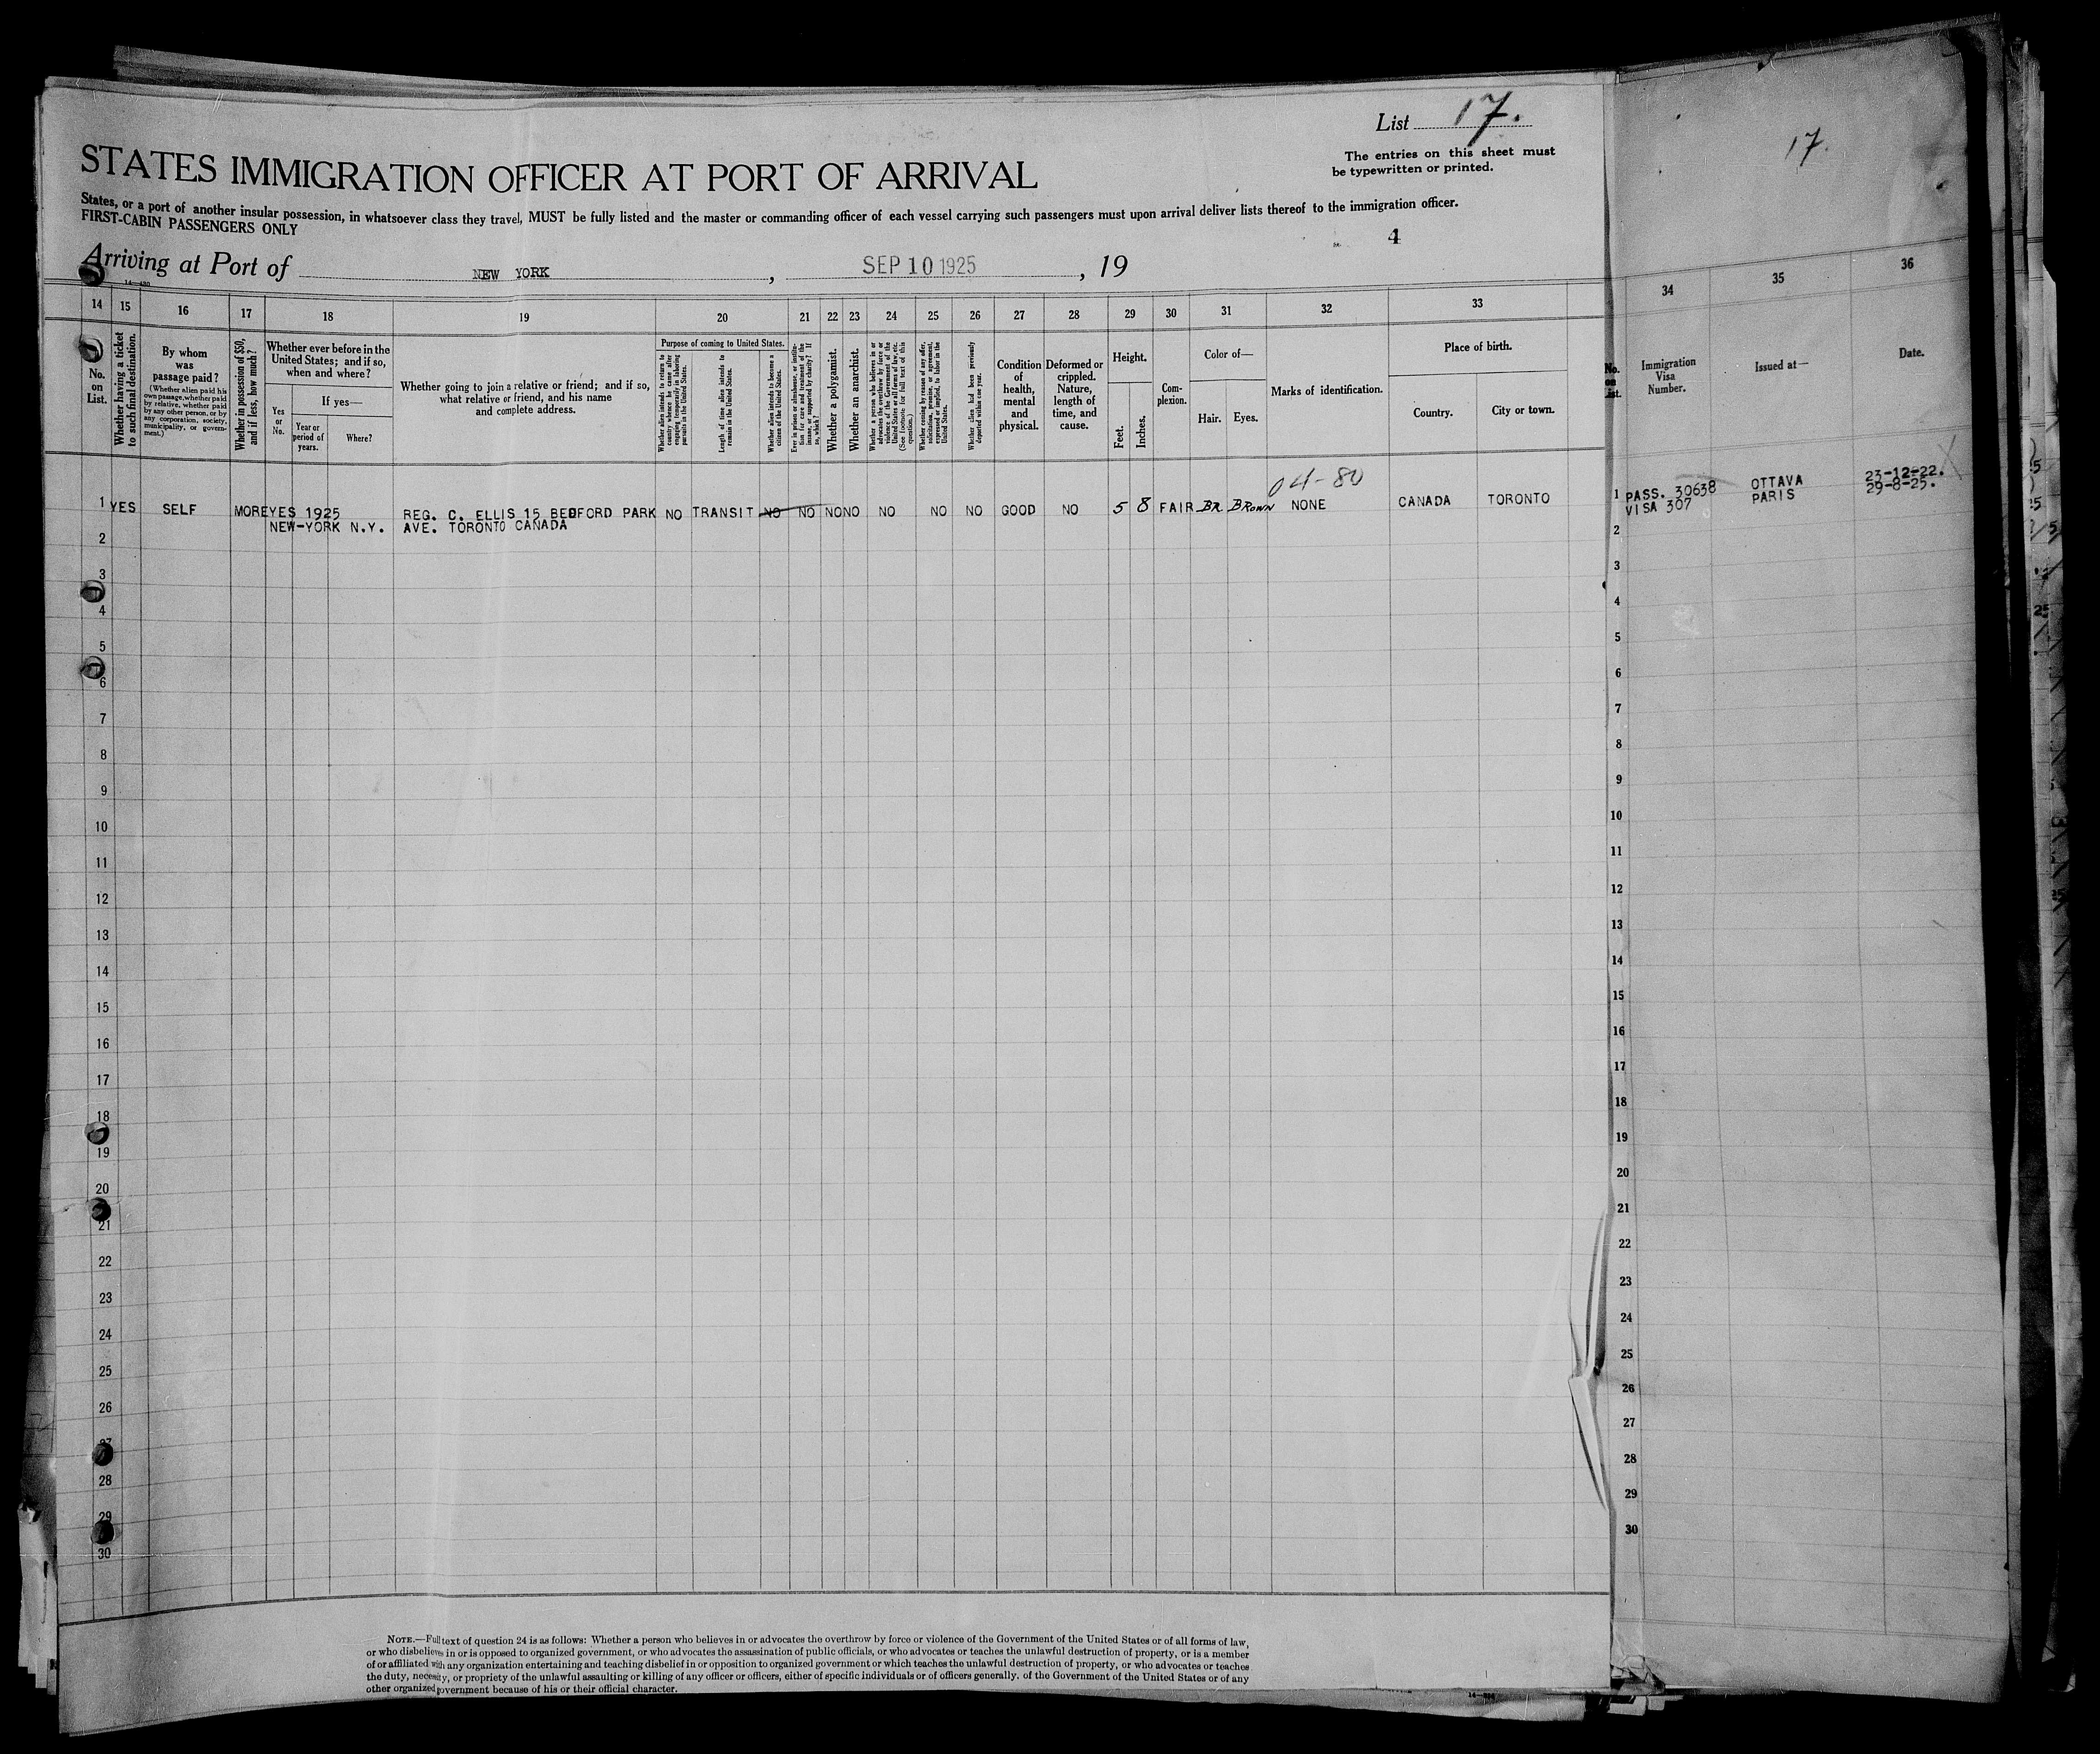 List 17.
The entries on this sheet must
be typewritten or printed.
17.
STATES IMMIGRATION OFFICER AT PORT OF ARRIVAL
States, or a port of another insular possession, in whatsoever class they travel, MUST be fully listed and the master or commanding officer of each vessel carrying such passengers must upon arrival deliver lists thereof to the immigration officer.
FIRST-CABIN PASSENGERS ONLY
4
Arriving at Port of NEW YORK, SEP 10 1925, 19
14 15 16 17 18 19 20 21 22 23 24 25 26 27 28 29 30 31 32 33 34 35 36
No.
on
List.
Whether having a ticket
to such final destination.
By whom
was
passage paid?
(Whether alien paid his
own passage, whether paid
by relative, whether paid
by any other person, or by
any corporation, society,
municipality, or govern-
ment.)
Whether in possession of $50,
and if less, how much?
Whether ever before in the
United States; and if so,
when and where?
If yes—
Yes
or
No.
Year or
period of
years.
Where?
Whether going to join a relative or friend; and if so,
what relative or friend, and his name
and complete address.
Purpose of coming to United States.
Whether alien intends to return to
country whence he came after
engaging temporarily in laboring
pursuits in the United States.
Length of time alien intends to
remain in the United States.
Whether alien intends to become a
citizen of the United States.
Ever in prison or almshouse, or institu-
tion for care and treatment of the
insane, or supported by charity? If
so, which?
Whether a polygamist.
Whether an anarchist.
Whether a person who believes in or
advocates the overthrow by force or
violence of the Government of the
United States or all forms of law, etc.
(See footnote for full text of this
question.)
Whether coming by reason of any offer,
solicitation, promise, or agreement,
expressed or implied, to labor in the
United States.
Whether alien had been previously
deported within one year.
Condition
of
health,
mental
and
physical.
Deformed or
crippled.
Nature,
length of
time, and
cause.
Height.
Feet.
Inches.
Com-
plexion.
Color of—
Hair. Eyes.
Marks of identification.
Place of birth.
Country. City or town.
No.
on
List.
Immigration
Visa
Number.
Issued at—
Date.
04-80
1 YES SELF MORE YES 1925 REG. C. ELLIS 15 BEDFORD PARK NO TRANSIT NO NO NO NO NO NO NO GOOD NO 5 8 FAIR BR BROWN NONE CANADA TORONTO 1 PASS. 30638 OTTAVA 23-12-22.
NEW-YORK N.Y. AVE. TORONTO CANADA VISA 307 PARIS 29-8-25.
2 2
3 3
4 4
5 5
6 6
7 7
8 8
9 9
10 10
11 11
12 12
13 13
14 14
15 15
16 16
17 17
18 18
19 19
20 20
21 21
22 22
23 23
24 24
25 25
26 26
27 27
28 28
29 29
30 30
NOTE.—Full text of question 24 is as follows: Whether a person who believes in or advocates the overthrow by force or violence of the Government of the United States or of all forms of law,
or who disbelieves in or is opposed to organized government, or who advocates the assassination of public officials, or who advocates or teaches the unlawful destruction of property, or is a member
of or affiliated with any organization entertaining and teaching disbelief in or opposition to organized government or which teaches the unlawful destruction of property, or who advocates or teaches
the duty, necessity, or propriety of the unlawful assaulting or killing of any officer or officers, either of specific individuals or of officers generally, of the Government of the United States or of any
other organized government because of his or their official character.